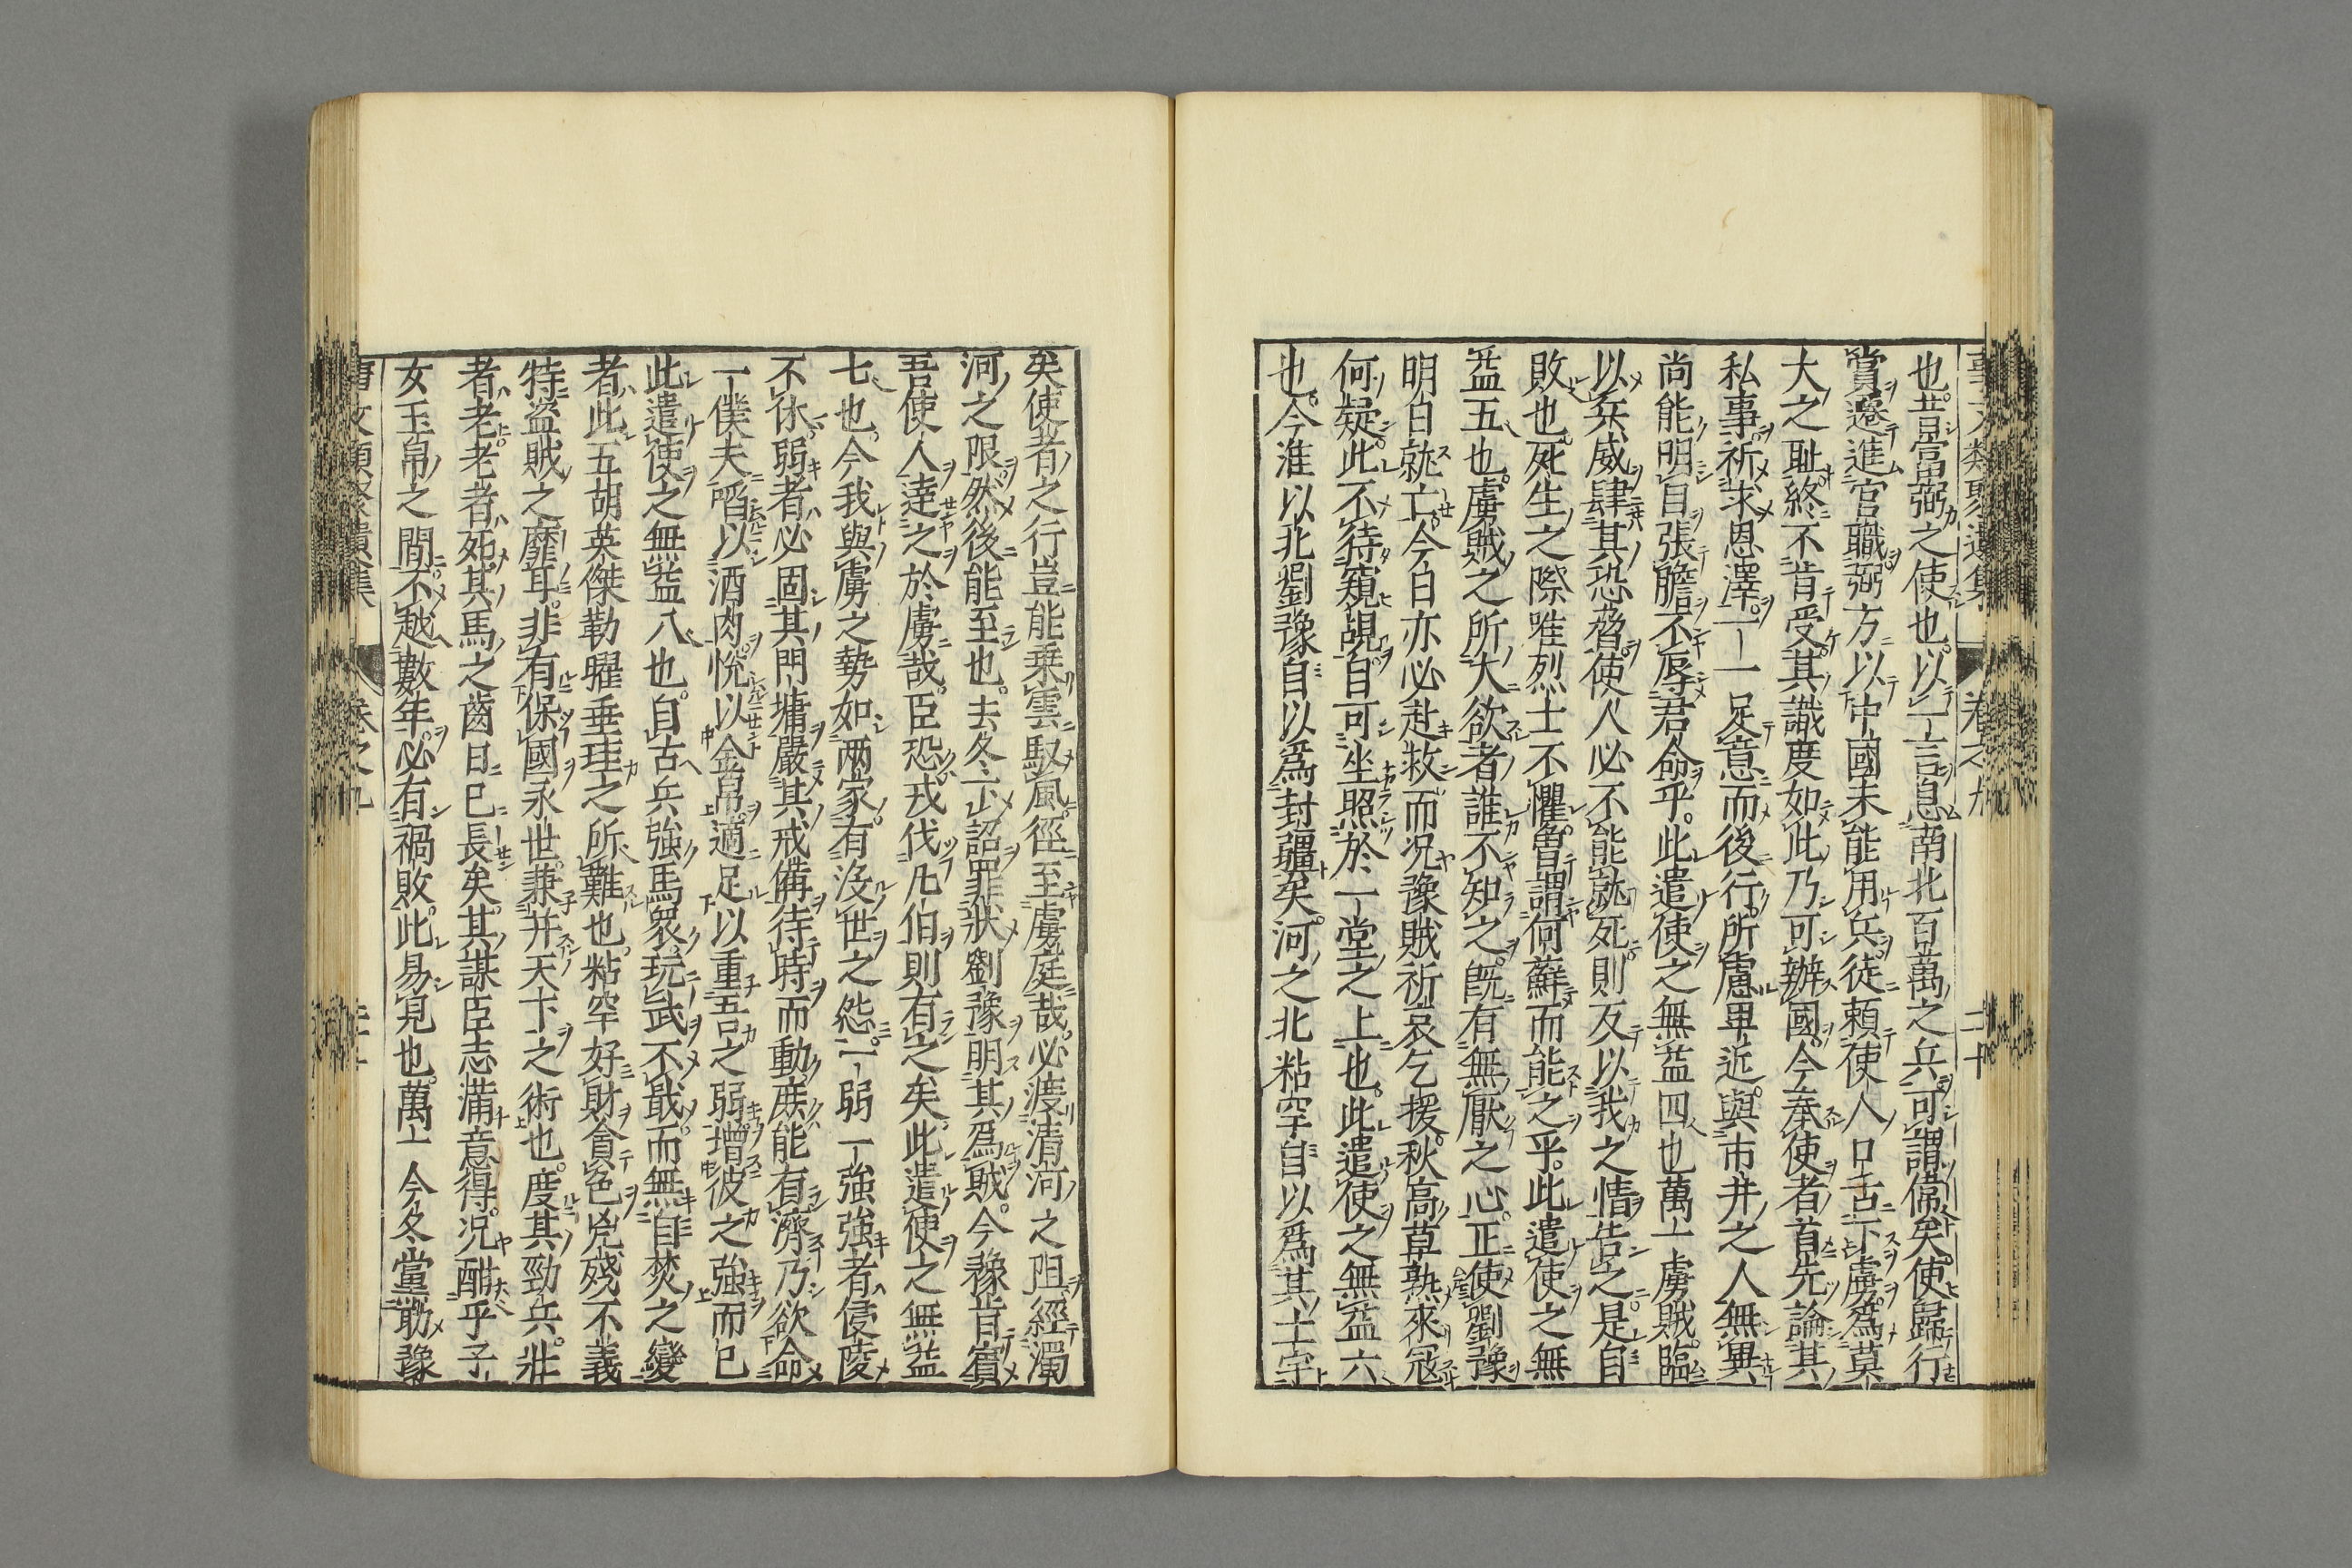 也昔富弼之使也以一言息南北百萬之兵可謂偉矣使歸行
賞遷進官職弼方以中國未能用兵徒頼使人口舌下虜爲莫
大之耻終不肯受其識度如此乃可辦國今奉使者首先論其
私事祈求恩澤一一足意而後行所慮卑近與市井之人無異
尚能明目張膽不辱君命乎此遣使之無益四也萬一虜賊臨
以兵威肆其恐脅使人必不能就死則反以我之情告之是自
敗也死生之際唯烈士不懼魯謂何蘇而能之乎此遣使之無
益五也虜賊之所大欲者誰不知之旣有無厭之心正使劉豫
明白就亡今白亦必赴救而况豫賊祈哀乞援秋高草熟來冦
何疑此不待窺覘自可坐照於一堂之上也此遣使之無益六
也今淮以北劉豫自以爲封疆矣河之北粘罕自以爲其土宇
矣使者之行豈能乗雲馭風徑至虜庭哉必渡清河之阻經濁
河之限然後能至也去冬下詔罪状劉豫明其爲賊今豫肯賓
吾使人達之於虜哉臣恐戎伐凡伯則有之矣此遣使之無益
七也今我與虜之勢如兩家有沒世之怨一弱一強強者侵陵
不休弱者必固其門墉嚴其戒備待時而動庶能有濟乃欲命
一僕夫啗以酒肉悅以金帛適足以重吾之弱增彼之強而已
此遣使之無益八也自古兵強馬衆玩武不戢而無自焚之變
者此五胡英傑勒曜垂珪之所難也粘罕好財貪色兇殘不義
特盗賊之靡耳非有保國永世兼并天下之術也度其勁兵壯
者老老者死其馬之齒日已長矣其謀臣志滿意得况酣乎子
女玉帛之間不越數年必有禍敗此易見也萬一今冬黨助豫